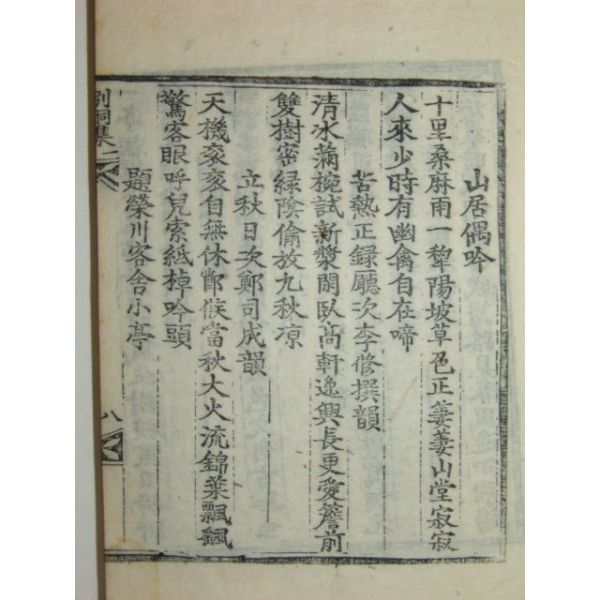 山居偶吟
十里桑麻雨一犂陽坡草色正萋萋山堂寂寂
人來少時有幽禽自在啼
苦熱正録廳次李修撰韻
清冰滿椀試新漿閑臥高軒逸興長更愛簷前
雙樹密緑陰偷放九秋凉
立秋日次鄭司成韻
天機衮衮自無休鄭候當秋大火流錦葉飄飄
驚客眼呼兒索紙掉吟頭
題榮川客舍小亭
別洞集二
八